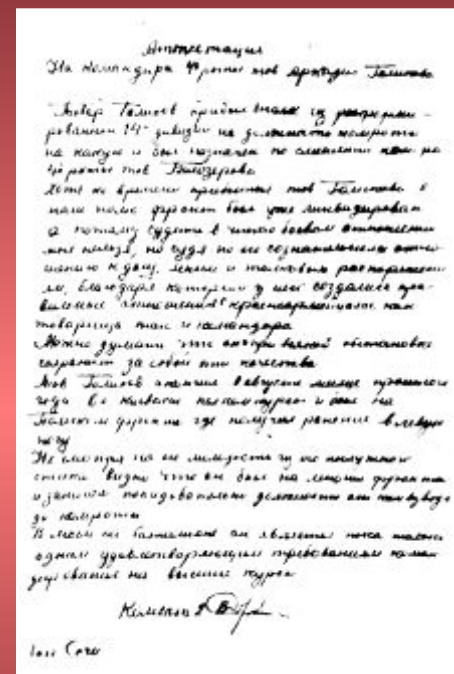 Аттестация
На командира 4 роты тов Аркадия Голикова
Товар Голиков прибыл
рованной 14 дивизии на должность комроты
на какую и был назначен по смещении ком ра
4й роты тов Белозерова
Хотя ко времени прибытия тов Голикова в
наш полк фронт был уже ликвидирован
а потому судить в чисто боевом отношении
мне нельзя, но судя по его сознательному отно
шению к делу, и толковым распоряжени
ям, благодаря которым у него создались пра
вильные отношения с красноармейцами как
товарища так и командира
Можно думать что он при боевой обстановке
сохранит за собой эти качества
Тов Голиков окончил в августе месяце прошлого
года 6е киевские пехот курсы и был на
Польском фронте где получил ранение в левую
ногу
Не смотря на его молодость из его послужного
списка видно что он был на многих фронтах
и занимал последовательно должности от ком взвода
до комроты
В моем же батальоне он является пока только
одним удовлетворяющим требованиям коман
дирования на высшие курсы